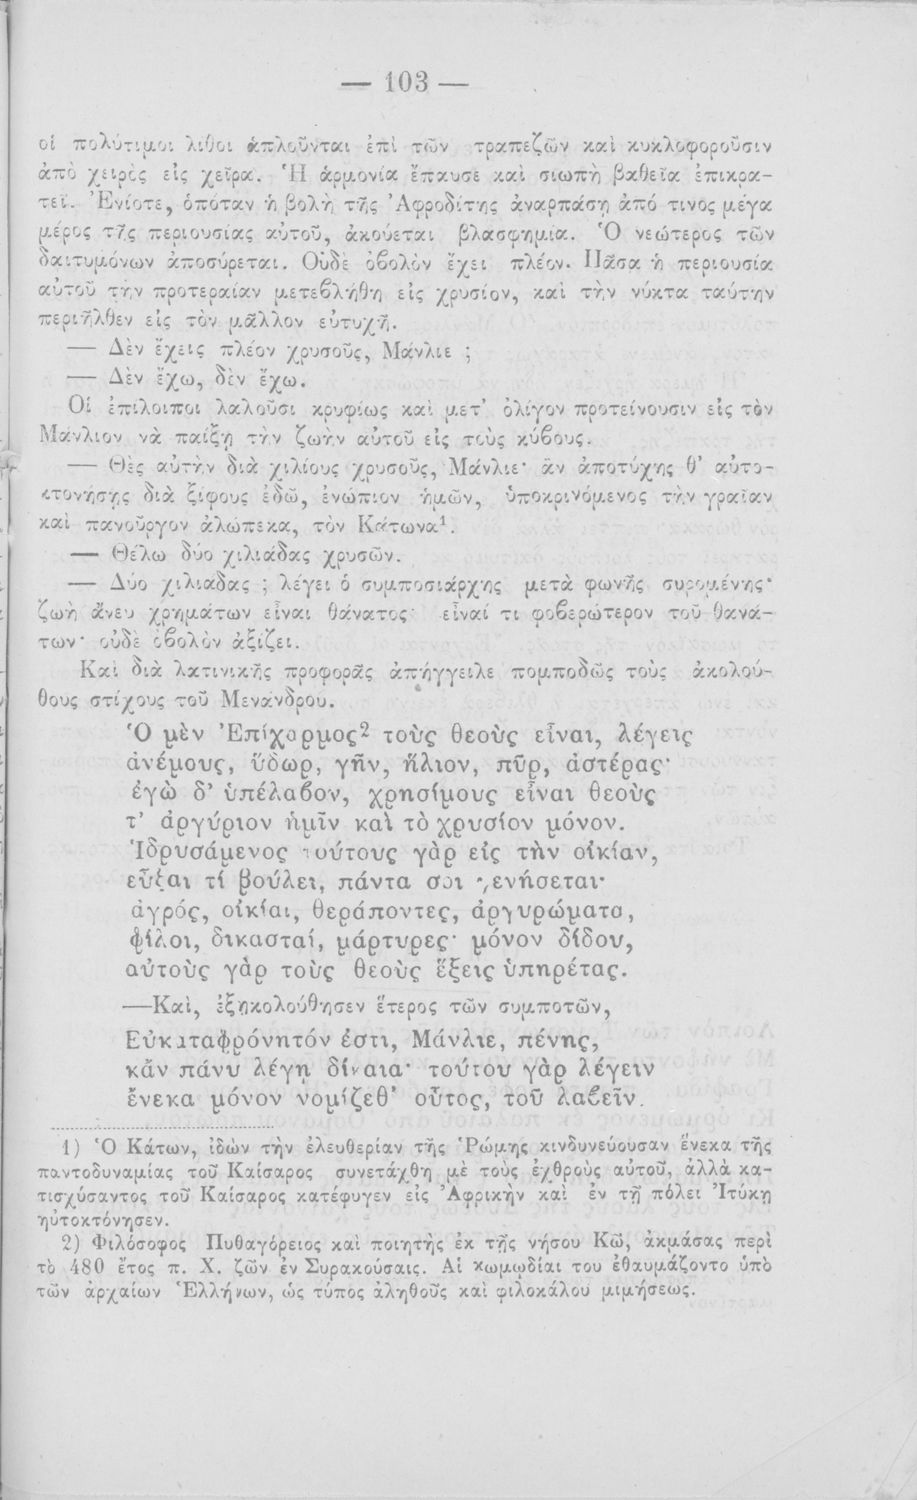 — 103 —
οἱ πολύτιμοι λίθοι ἁπλοῦνται ἐπὶ τῶν τραπεζῶν καὶ κυκλοφοροῦσιν
ἀπὸ χειρὸς εἰς χεῖρα. Ἡ ἁρμονία ἔπαυσε καὶ σιωπὴ βαθεῖα ἐπικρα-
τεῖ. Ἐνίοτε, ὁπόταν ἡ βολὴ τῆς Ἀφροδίτης ἀναρπάσῃ ἀπό τινος μέγα
μέρος τῆς περιουσίας αὐτοῦ, ἀκούεται βλασφημία. Ὁ νεώτερος τῶν
δαιτυμόνων ἀποσύρεται. Οὐδὲ ὀβολὸν ἔχει πλέον. Πᾶσα ἡ περιουσία
αὐτοῦ τὴν προτεραίαν μετεβλήθη εἰς χρυσίον, καὶ τὴν νύκτα ταύτην
περιῆλθεν εἰς τὸν μᾶλλον εὐτυχῆ.
— Δὲν ἔχεις πλέον χρυσοῦς, Μάνλιε ;
— Δὲν ἔχω, δὲν ἔχω.
Οἱ ἐπίλοιποι λαλοῦσι κρυφίως καὶ μετ' ὀλίγον προτείνουσιν εἰς τὸν
Μάνλιον νὰ παίξῃ τὴν ζωὴν αὐτοῦ εἰς τοὺς κύβους.
— Θὲς αὐτὴν διὰ χιλίους χρυσοῦς, Μάνλιε· ἂν ἀποτύχῃς θ' αὐτο-
κτονήσῃς διὰ ξίφους ἐδῶ, ἐνώπιον ἡμῶν, ὑποκρινόμενος τὴν γραῖαν
καὶ πανοῦργον ἀλώπεκα, τὸν Κάτωνα¹.
— Θέλω δύο χιλιάδας χρυσῶν.
— Δύο χιλιάδας ; λέγει ὁ συμποσιάρχης μετὰ φωνῆς συρομένης·
ζωὴ ἄνευ χρημάτων εἶναι θάνατος· εἶναί τι φοβερώτερον τοῦ θανά-
των· οὐδὲ ὀβολὸν ἀξίζει.
Καὶ διὰ λατινικῆς προφορᾶς ἀπήγγειλε πομποδῶς τοὺς ἀκολού-
θους στίχους τοῦ Μενάνδρου.
Ὁ μὲν Ἐπίχαρμος² τοὺς θεοὺς εἶναι, λέγεις
ἀνέμους, ὕδωρ, γῆν, ἥλιον, πῦρ, ἀστέρας·
ἐγὼ δ' ὑπέλαβον, χρησίμους εἶναι θεοὺς
τ' ἀργύριον ἡμῖν καὶ τὸ χρυσίον μόνον.
Ἱδρυσάμενος τούτους γὰρ εἰς τὴν οἰκίαν,
εὖξαι τί βούλει, πάντα σοι γενήσεται·
ἀγρός, οἰκίαι, θεράποντες, ἀργυρώματα,
φίλοι, δικασταί, μάρτυρες· μόνον δίδου,
αὐτοὺς γὰρ τοὺς θεοὺς ἕξεις ὑπηρέτας.
—Καί, ἐξηκολούθησεν ἕτερος τῶν συμποτῶν,
Εὐκαταφρόνητόν ἐστι, Μάνλιε, πένης,
κἄν πάνυ λέγῃ δίκαια· τούτου γὰρ λέγειν
ἕνεκα μόνον νομίζεθ' οὗτος, τοῦ λαβεῖν.
1) Ὁ Κάτων, ἰδὼν τὴν ἐλευθερίαν τῆς Ῥώμης κινδυνεύουσαν ἕνεκα τῆς
παντοδυναμίας τοῦ Καίσαρος συνετάχθη μὲ τοὺς ἐχθροὺς αὐτοῦ, ἀλλὰ κα-
τισχύσαντος τοῦ Καίσαρος κατέφυγεν εἰς Ἀφρικὴν καὶ ἐν τῇ πόλει Ἰτύκῃ
ηὐτοκτόνησεν.
2) Φιλόσοφος Πυθαγόρειος καὶ ποιητὴς ἐκ τῆς νήσου Κῶ, ἀκμάσας περὶ
τὸ 480 ἔτος π. Χ. ζῶν ἐν Συρακούσαις. Αἱ κωμῳδίαι του ἐθαυμάζοντο ὑπὸ
τῶν ἀρχαίων Ἑλλήνων, ὡς τύπος ἀληθοῦς καὶ φιλοκάλου μιμήσεως.